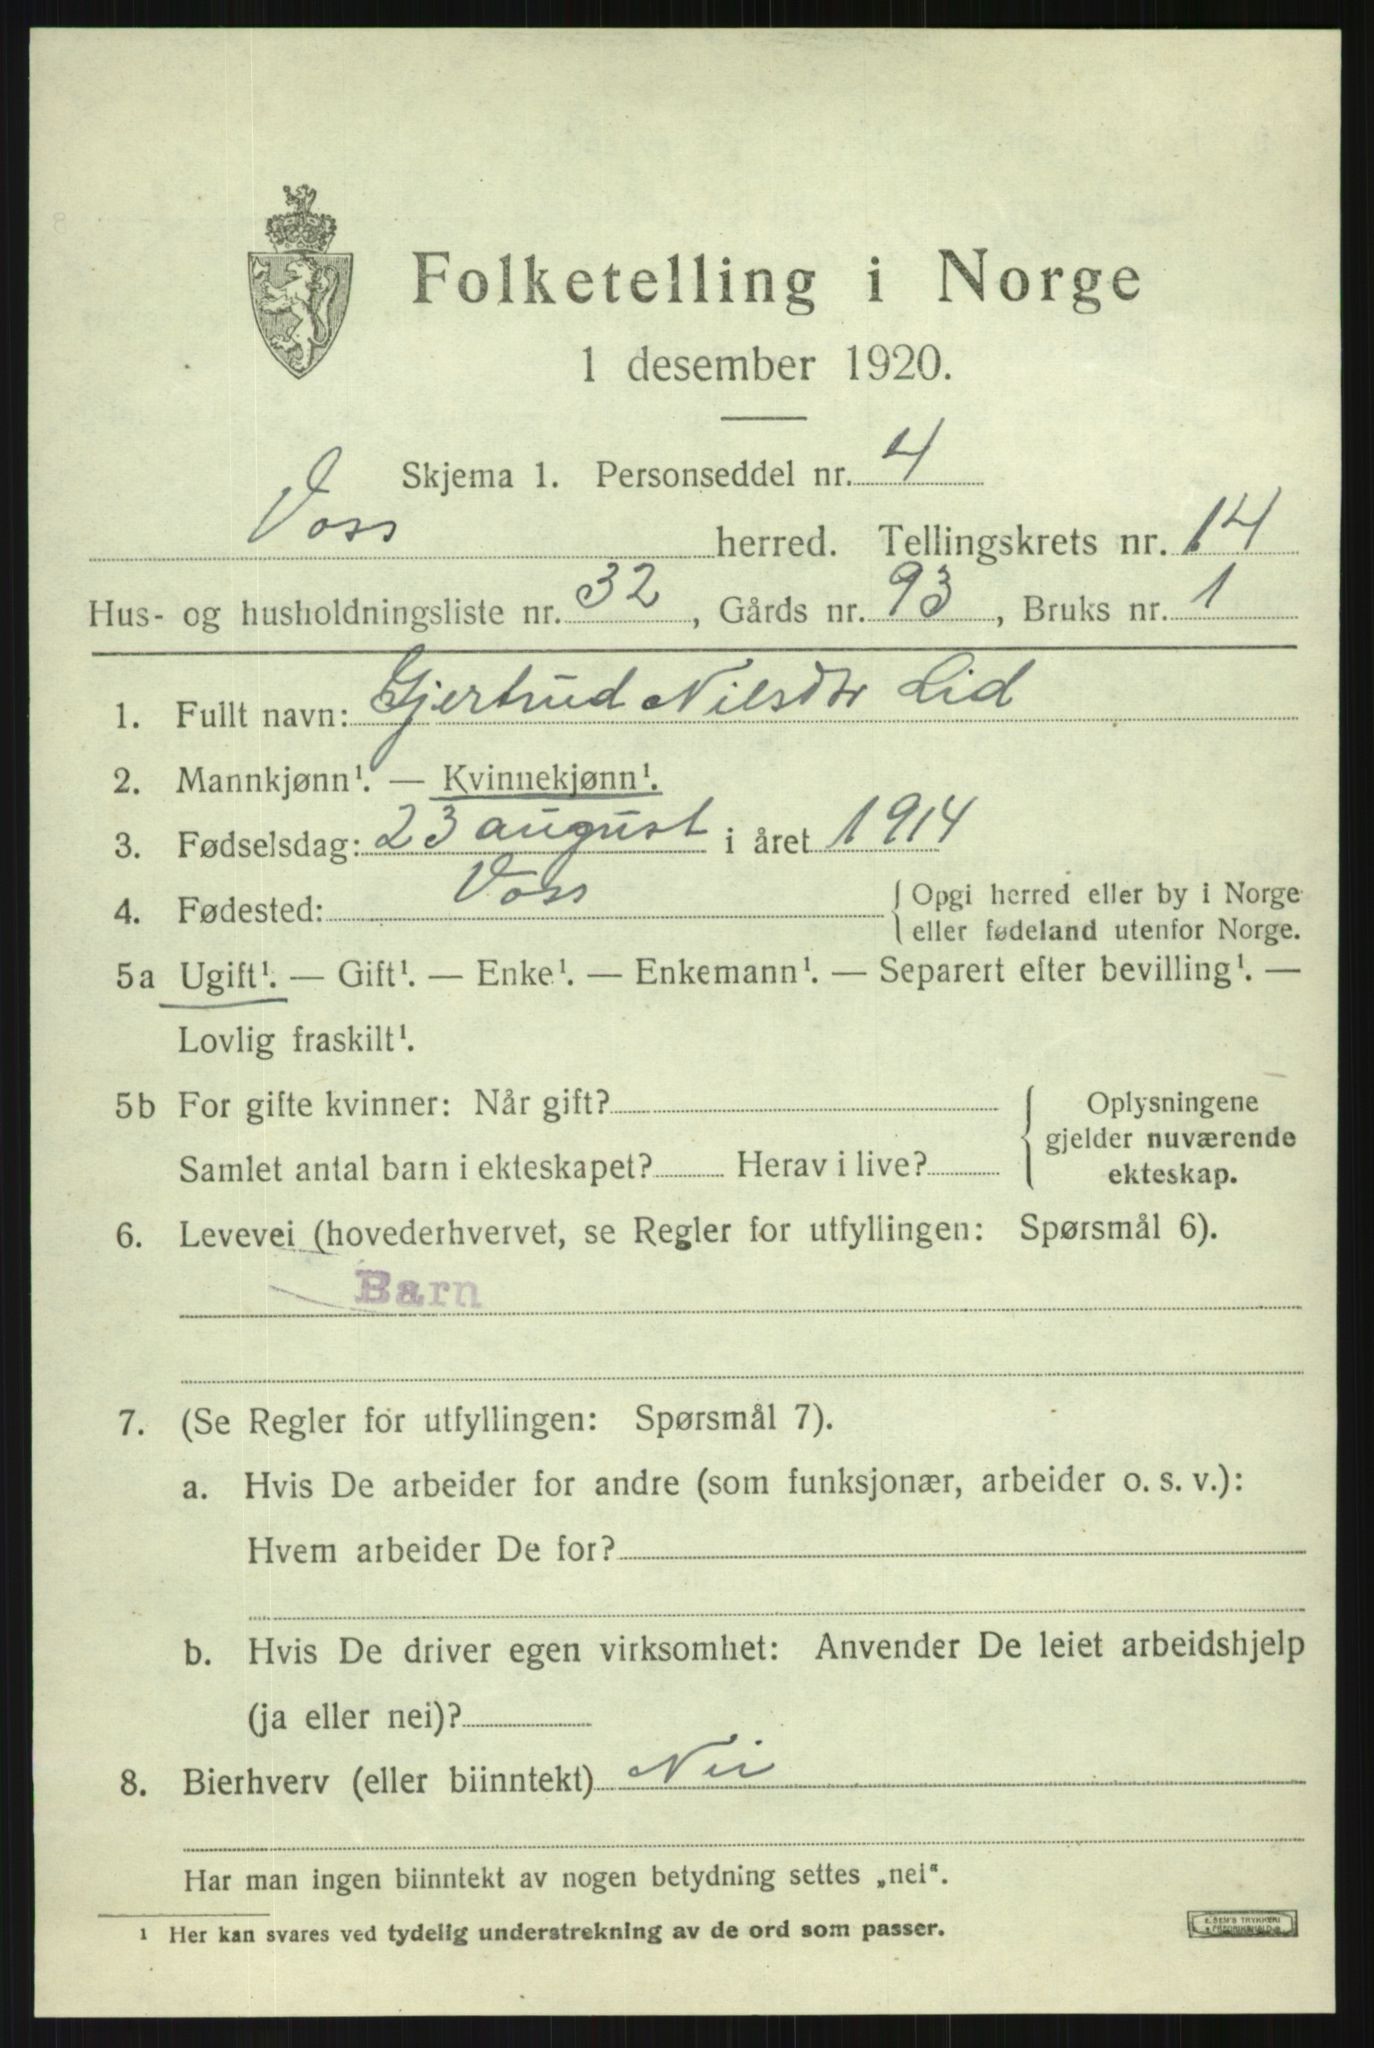 Folketelling i Norge
1 desember 1920.
Skjema 1. Personseddel nr. 4
Voss herred. Tellingskrets nr. 14
Hus- og husholdningsliste nr. 32, Gårds nr. 93, Bruks nr. 1
1. Fullt navn: Gjertrud Nilsdtr Lid
2. Mannkjønn¹. — Kvinnekjønn¹.
3. Fødselsdag: 23 august i året 1914
4. Fødested: Voss { Opgi herred eller by i Norge
eller fødeland utenfor Norge.
5a Ugift¹. — Gift¹. — Enke¹. — Enkemann¹. — Separert efter bevilling¹. —
Lovlig fraskilt¹.
5b For gifte kvinner: Når gift?
Samlet antal barn i ekteskapet? Herav i live?
{ Oplysningene
gjelder nuværende
ekteskap.
6. Levevei (hovederhvervet, se Regler for utfyllingen: Spørsmål 6).
Barn
7. (Se Regler for utfyllingen: Spørsmål 7).
a. Hvis De arbeider for andre (som funksjonær, arbeider o. s. v.):
Hvem arbeider De for?
b. Hvis De driver egen virksomhet: Anvender De leiet arbeidshjelp
(ja eller nei)?
8. Bierhverv (eller biinntekt) Nei
Har man ingen biinntekt av nogen betydning settes „nei“.
¹ Her kan svares ved tydelig understrekning av de ord som passer.
E. SEM'S TRYKKERI
FREDRIKSHALD